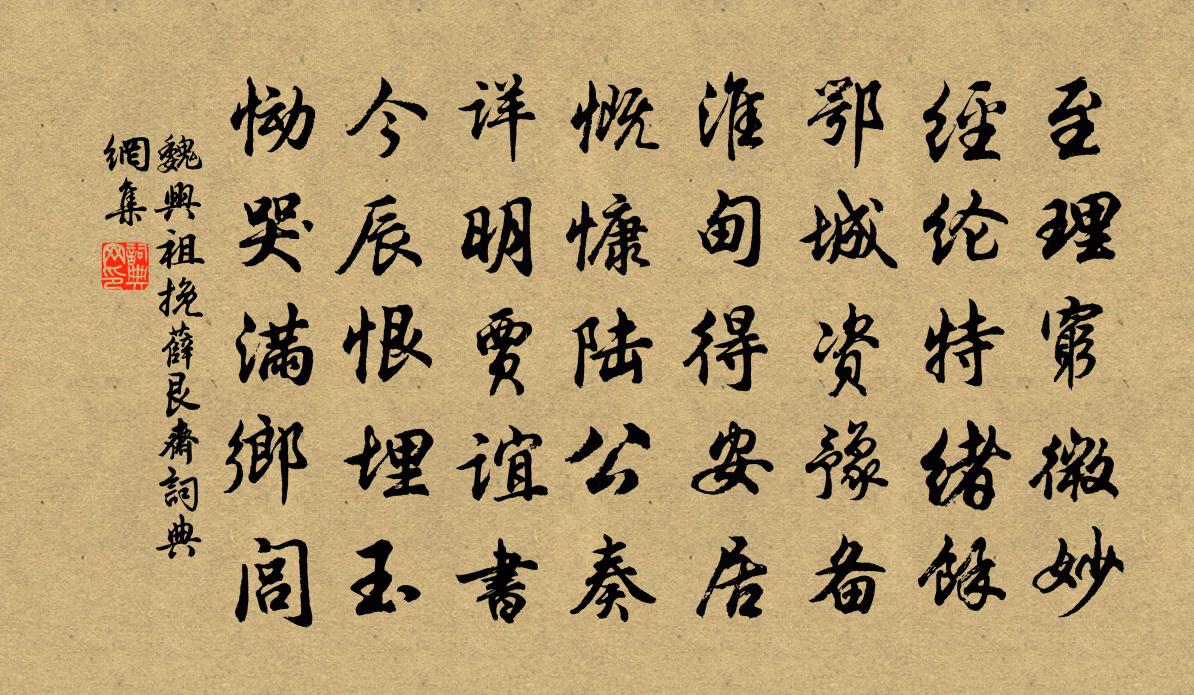 至理窮微妙
經纶特緒餘
鄂城资豫备
淮甸得安居
慨慷陆公奏
详明贾谊書
今辰恨埋玉
恸哭满鄉闾
魏興祖挽薛艮齋詞典
網集
詞典
网印